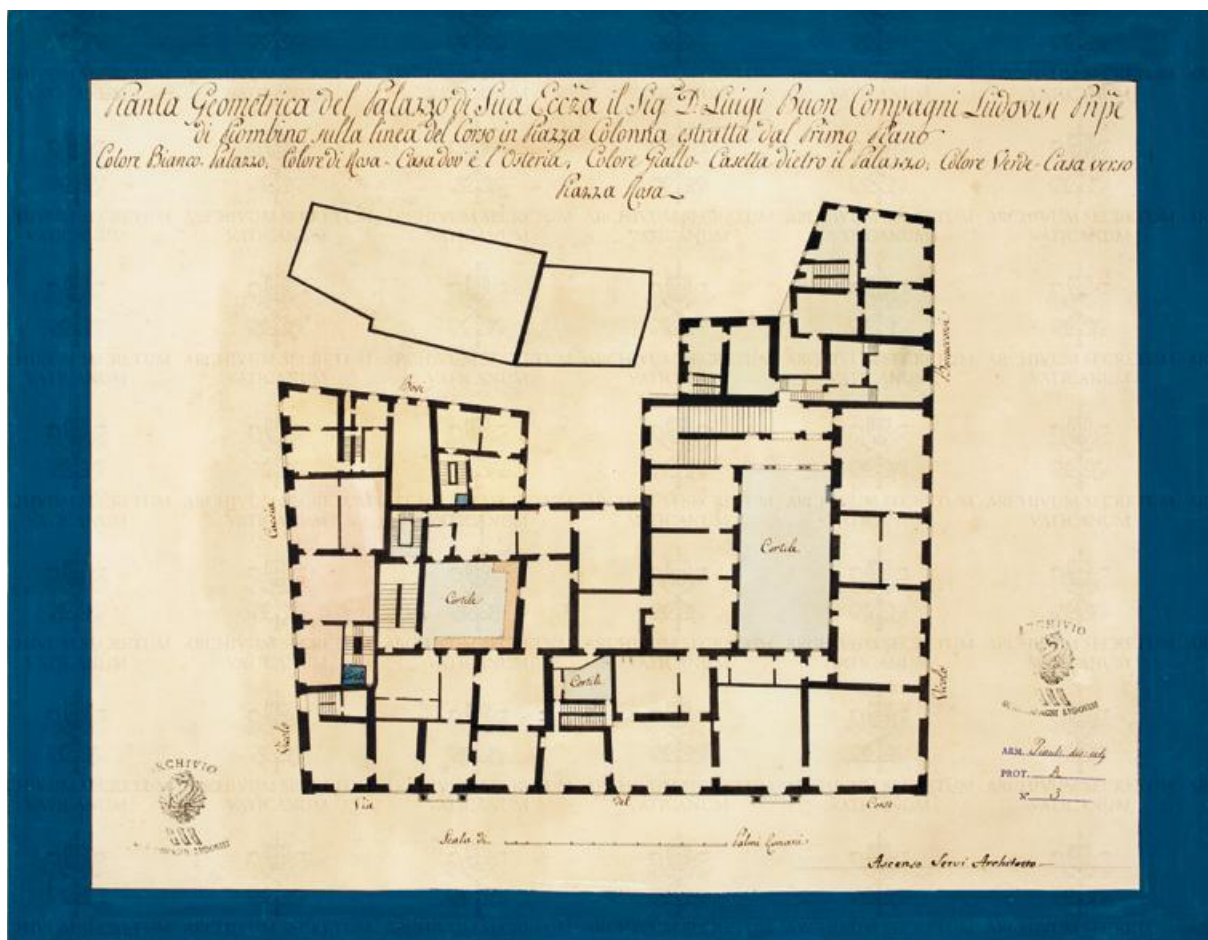 Pianta Geometrica del Palazzo di Sua Eccza il Sig D. Luigi Buon Compagni Ludovisi Pnpe
di Piombino sulla linea del Corso in Piazza Colonna estratta dal Primo Piano
Colore Bianco-Palazzo, Colore di Rosa-Casa dov'è l'Osteria, Colore Giallo-Casetta dietro il Palazzo, Colore Verde-Casa verso
Piazza Rosa
Bovi
Caccia
Vicolo
Cortile
Cortile
Cortile
Vicolo
Via del Corso
Scala di Palmi Romani
Ascenso Servi Architetto
ARCHIVIO
ARCHIVIO
ARM.
PROT. A
N. 3
ARCHIVUM SECRETUM
VATICANUM